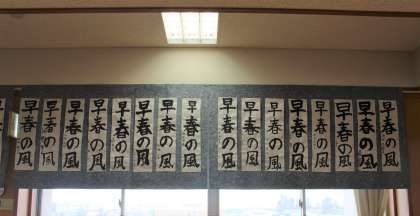 早春の風
早春の風
早春の風
早春の風
早春の風
早春の風
早春の風
早春の風
早春の風
早春の風
早春の風
早春の風
早春の風
早春の風
早春の風
早春の風